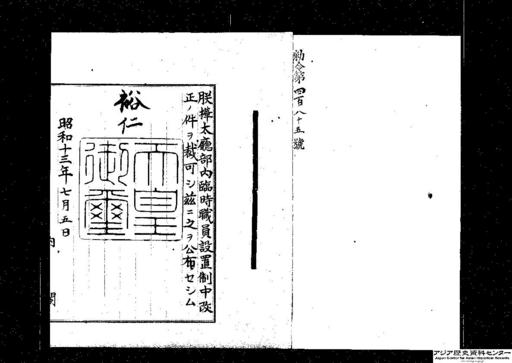 勅令第四百八十五號
朕樺太廳部內臨時職員設置制中改
正ノ件ヲ裁可シ茲ニ之ヲ公布セシム
裕仁
天皇
御璽
昭和十三年七月五日
內閣
アジア歴史資料センター
Japan Center for Asian Historical Records